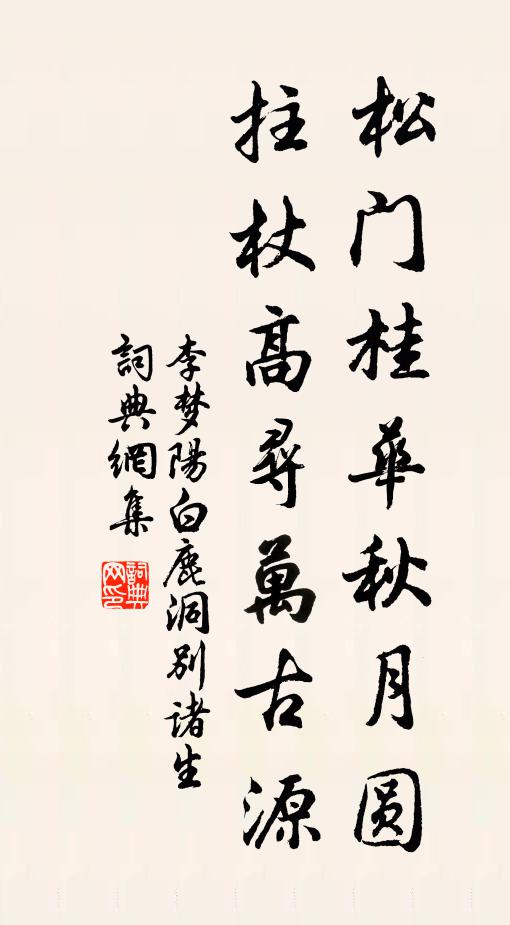 松门桂華秋月圆
拄杖高尋萬古源
李梦陽白鹿洞别诸生
詞典網集
詞典网印